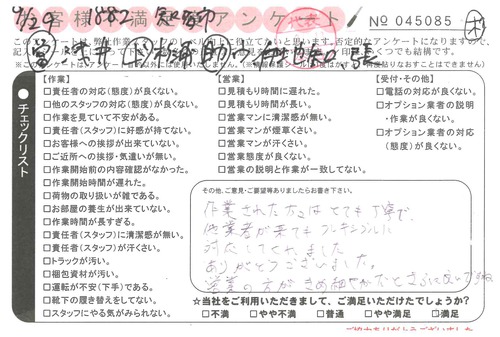 4/29 882
お客様満足アンケート
No 045085
このアンケートは、弊社作業
に役立てたいと思います。否定的なアンケートになりますので、
いくつでも結構です。
チェックリスト
【作業】
□責任者の対応(態度)が良くない。
□他のスタッフの対応(態度)が良くない。
□作業を見ていて不安がある。
□責任者(スタッフ)に好感が持てない。
□お客様への挨拶が出来ていない。
□ご近所への挨拶・気遣いが無い。
□作業開始前の内容確認がなかった。
□作業開始時間が遅れた。
□荷物の取り扱いが雑である。
□お部屋の養生が出来ていない。
□作業時間が長すぎる。
□責任者(スタッフ)に清潔感が無い。
□責任者(スタッフ)が汗くさい。
□トラックが汚い。
□梱包資材が汚い。
□運転が不安(下手)である。
□靴下の履き替えをしてない。
□スタッフにやる気がみられない。
【営業】
□見積もり時間に遅れた。
□見積もり時間が長い。
□営業マンに清潔感が無い。
□営業マンが煙草くさい。
□営業マンが汗くさい。
□営業態度が良くない。
□営業の説明と作業が一致してない。
【受付・その他】
□電話の対応が良くない。
□オプション業者の説明
・作業が良くない。
□オプション業者の対応
(態度)が良くない。
その他、ご意見・ご要望等ありましたらお書き下さい。
作業された方々はとても丁寧で、
他業者が来てもフレキシブルに
対応してくれました
ありがとうございました。
営業の方がきめ細やかだとさらに良いですね
☆当社をご利用いただきまして、ご満足いただけたでしょうか?
□不満 □やや不満 □普通 □やや満足 □満足
ご協力ありがとうございました